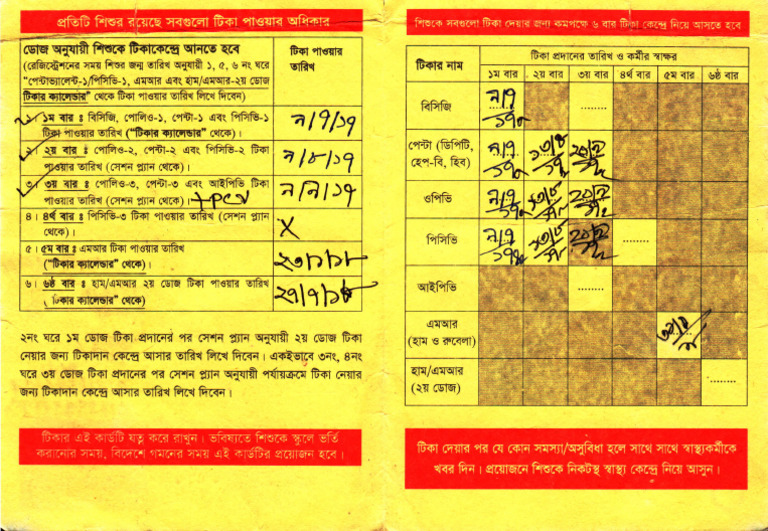 প্রতিটি শিশুর রয়েছে সবগুলো টিকা পাওয়ার অধিকার
ডোজ অনুযায়ী শিশুকে টিকাকেন্দ্রে আনতে হবে
(রেজিস্ট্রেশনের সময় শিশুর জন্ম তারিখ অনুযায়ী ১, ৫, ৬ নং ঘরে
"পেন্টাভ্যালেন্ট-১/পিসিভি-১, এমআর এবং হাম/এমআর-২য় ডোজ
টিকার ক্যালেন্ডার" থেকে টিকা পাওয়ার তারিখ লিখে দিবেন)
টিকা পাওয়ার
তারিখ
১ম বার ঃ বিসিজি, পোলিও-১, পেন্টা-১ এবং পিসিভি-১
টিকা পাওয়ার তারিখ ("টিকার ক্যালেন্ডার" থেকে)।
৯/৭/১৭
২। ২য় বার ঃ পোলিও-২, পেন্টা-২ এবং পিসিভি-২ টিকা
পাওয়ার তারিখ (সেশন প্ল্যান থেকে)।
৯/৮/১৭
৩। ৩য় বার ঃ পোলিও-৩, পেন্টা-৩ এবং আইপিভি টিকা
পাওয়ার তারিখ (সেশন প্ল্যান থেকে)। +pcv
৯/৯/১৭
৪। ৪র্থ বার ঃ পিসিভি-৩ টিকা পাওয়ার তারিখ (সেশন প্ল্যান
থেকে)।
X
৫। ৫ম বার ঃ এমআর টিকা পাওয়ার তারিখ
("টিকার ক্যালেন্ডার" থেকে)।
৬। ৬ষ্ঠ বার ঃ হাম/এমআর ২য় ডোজ টিকা পাওয়ার তারিখ
(টিকার ক্যালেন্ডার" থেকে)
২নং ঘরে ১ম ডোজ টিকা প্রদানের পর সেশন প্ল্যান অনুযায়ী ২য় ডোজ টিকা
নেয়ার জন্য টিকাদান কেন্দ্রে আসার তারিখ লিখে দিবেন। একইভাবে ৩নং, ৪নং
ঘরে ৩য় ডোজ টিকা প্রদানের পর সেশন প্ল্যান অনুযায়ী পর্যায়ক্রমে টিকা নেয়ার
জন্য টিকাদান কেন্দ্রে আসার তারিখ লিখে দিবেন।
টিকার এই কার্ডটি যত্ন করে রাখুন। ভবিষ্যতে শিশুকে স্কুলে ভর্তি
করানোর সময়, বিদেশে গমনের সময় এই কার্ডটির প্রয়োজন হবে।
শিশুকে সবগুলো টিকা দেয়ার জন্য কমপক্ষে ৬ বার টিকা কেন্দ্রে নিয়ে আসতে হবে
টিকার নাম
টিকা প্রদানের তারিখ ও কর্মীর স্বাক্ষর
১ম বার ২য় বার ৩য় বার ৪র্থ বার ৫ম বার ৬ষ্ঠ বার
বিসিজি
পেন্টা (ডিপিটি,
হেপ-বি, হিব)
ওপিভি
পিসিভি
আইপিভি
এমআর
(হাম ও রুবেলা)
হাম/এমআর
(২য় ডোজ)
টিকা দেয়ার পর যে কোন সমস্যা/অসুবিধা হলে সাথে সাথে স্বাস্থ্যকর্মীকে
খবর দিন। প্রয়োজনে শিশুকে নিকটস্থ স্বাস্থ্য কেন্দ্রে নিয়ে আসুন।